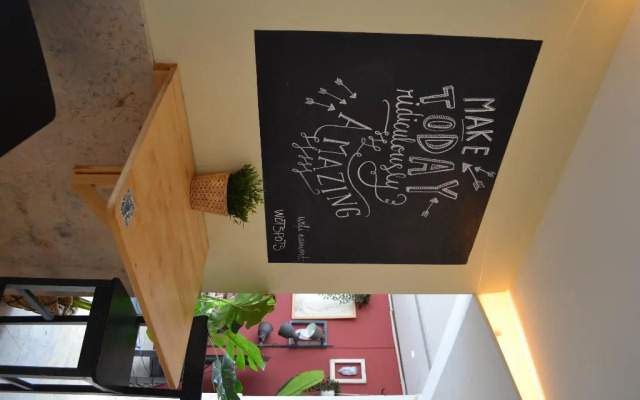 MAKE
TODAY
ridiculously
AMAZING
WOTSPOTS